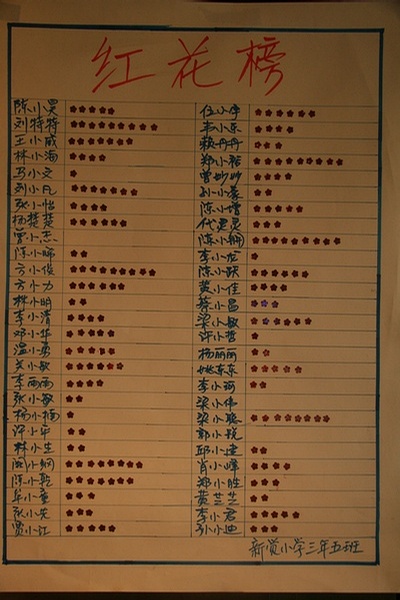 红花榜
陈小昊
刘特特
王小威
林小海
马小文
刘小凡
张小怡
杨楚楚
曾小志
陈小晞
方小俊
方小力
林小明
李小清
邓小华
温小勇
关小敏
李雨雨
张小敏
杨小楠
许小平
林小生
周小炳
陈小乾
张小先
贾小江
任小宇
韦小乐
赖丹丹
郑小裕
曾妙妙
孙小豪
陈小增
代灵灵
陈小钢
李小龙
陈小跃
黄小佳
蔡小昌
梁小敏
许小哲
杨丽丽
姚东东
李小河
梁小伟
梁小聪
郭小锐
邱小建
肖小峰
郑小胜
黄芝芝
李小君
孙小迪
新觉小学三年五班